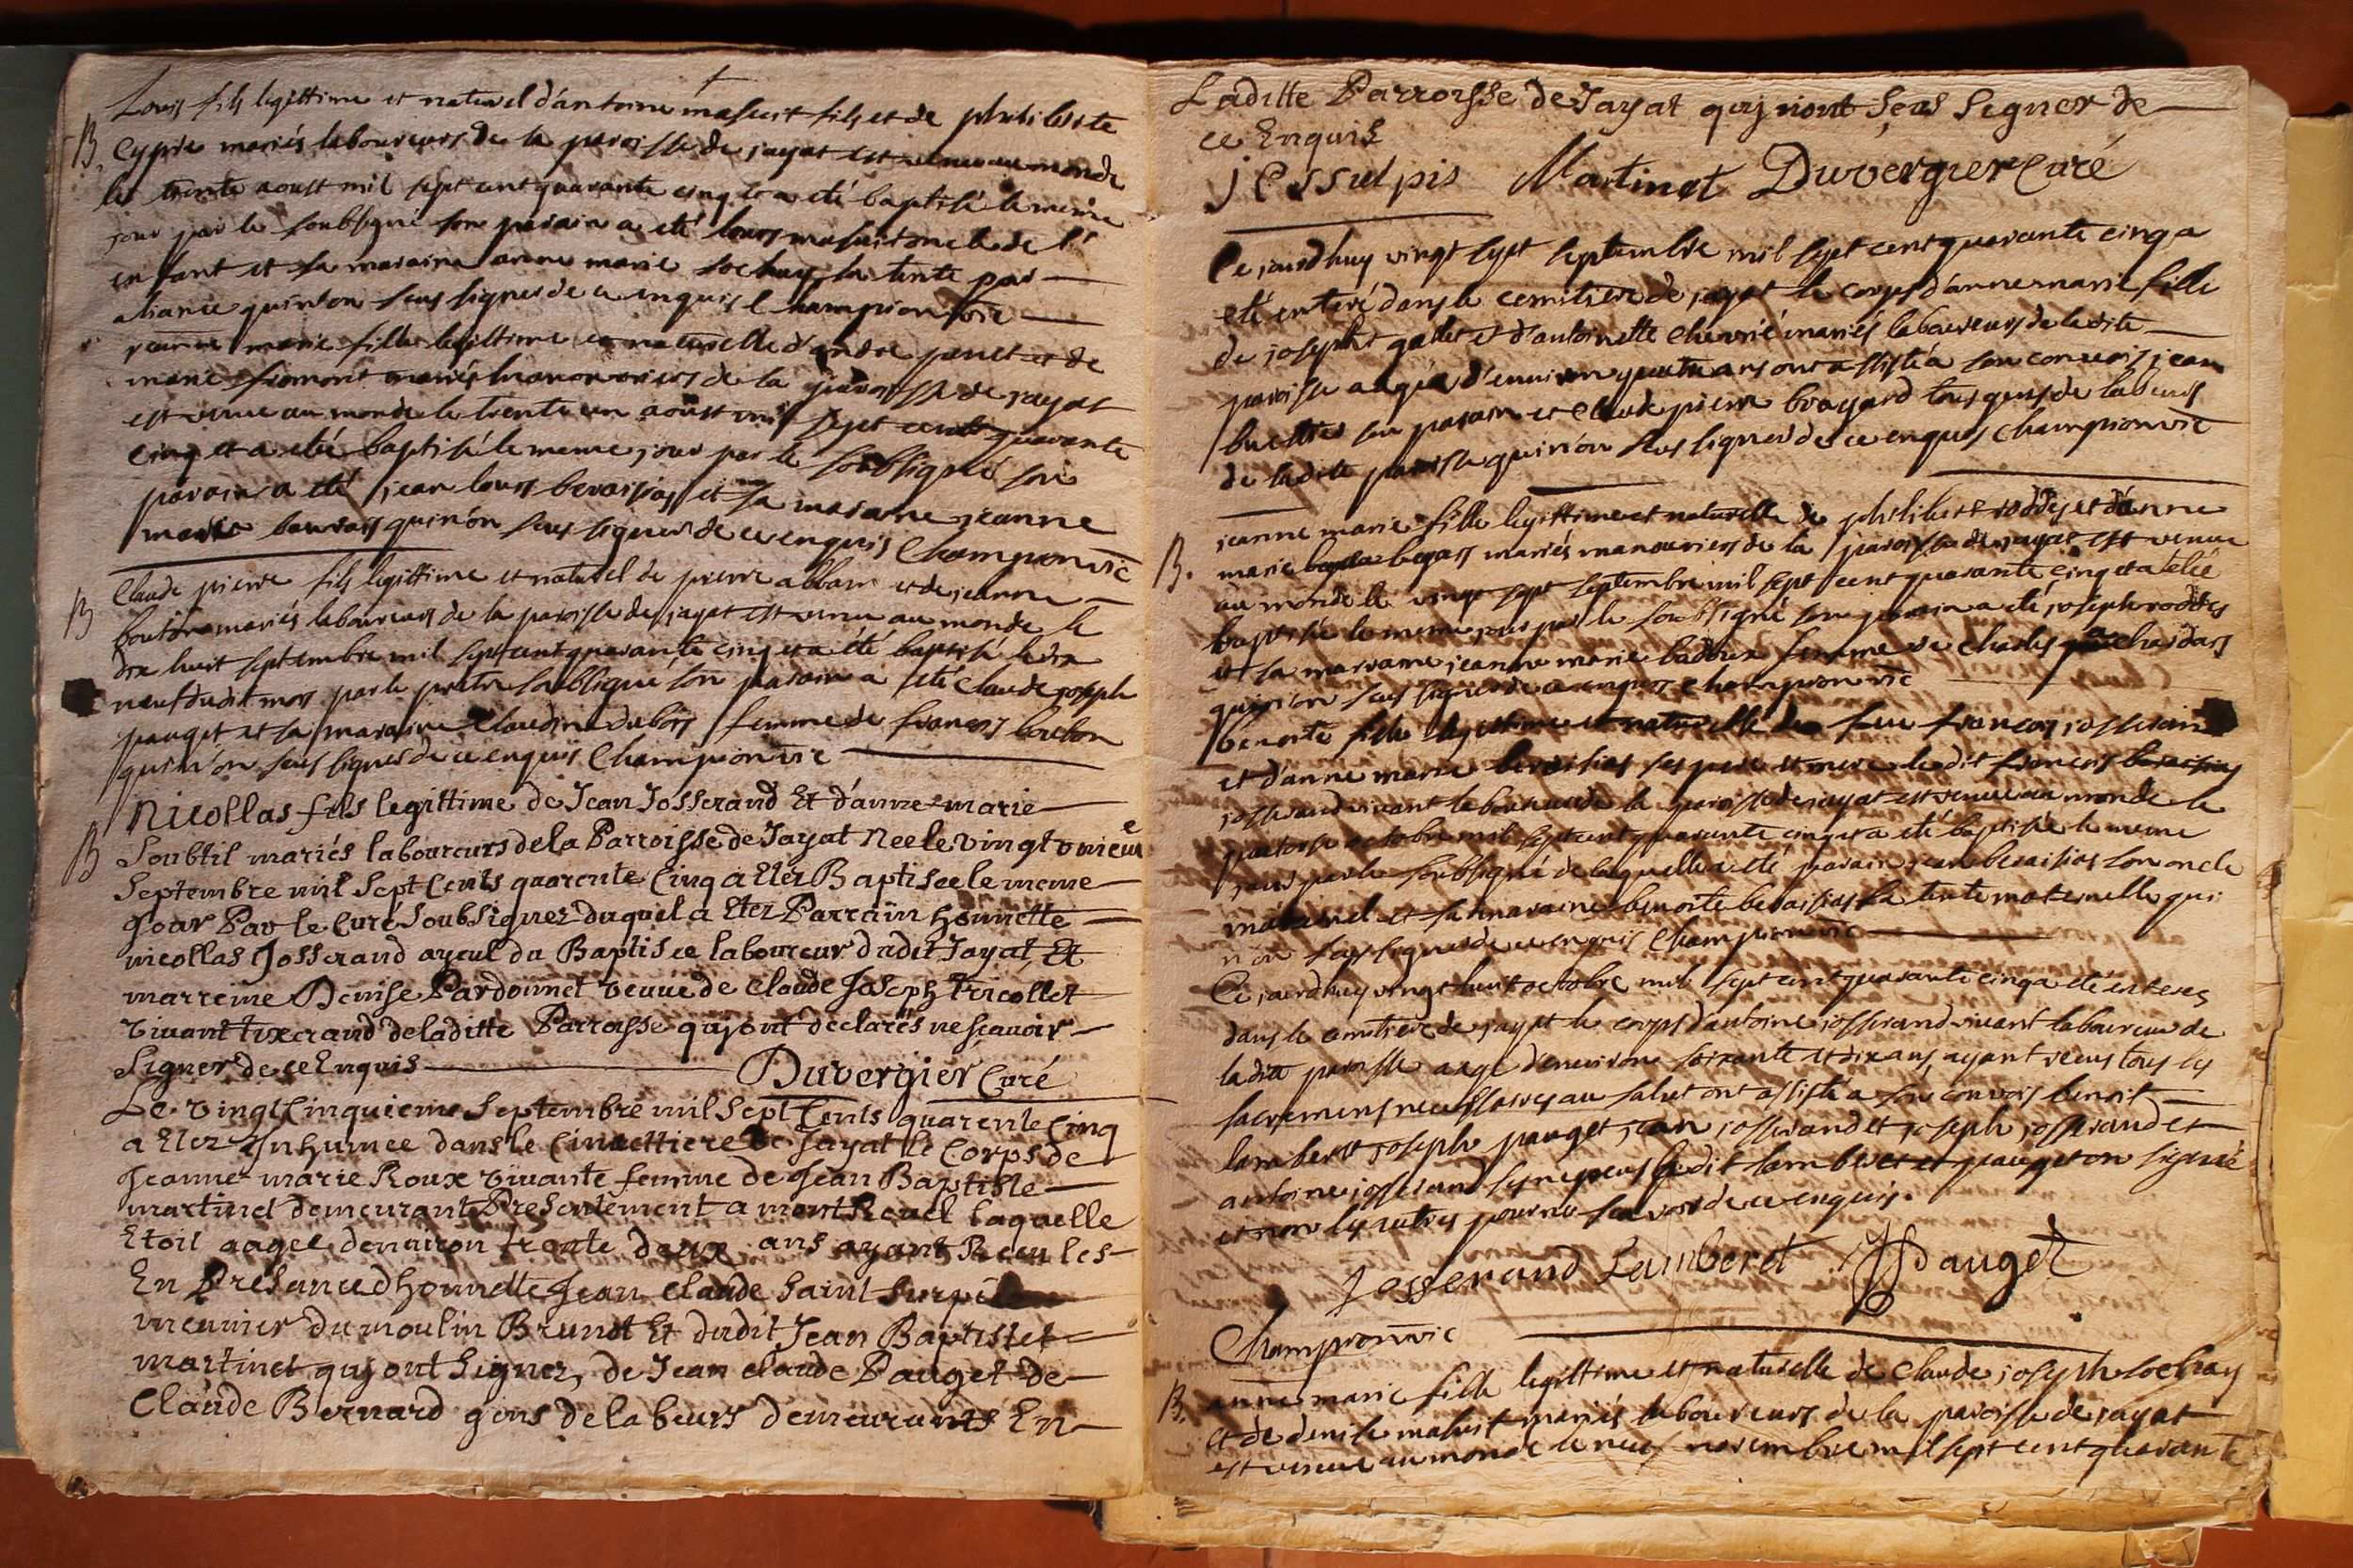 Louis fils legittime et naturel d'antoine masuit fils et de philiberte
B. Cyprie mariés laboureurs de la paroisse de jayat est venu au monde
le trente aoust mil sept cent quarante cinq et a eté baptisé le meme
jour par le soubsigné son parain a eté louis masuit oncle de l'
enfant et sa maraine anne marie sochay sa tente par
aliance qui n'on seus signer de ce enquis Champion vic
jeanne marie fille legittime et naturelle d'andré penet et de
marie fromont mariés manouvriers de la paroisse de jayat
est venue au monde le trente un aoust mil sept cent quarante
cinq et a eté baptisé le meme jour par le soubsigné son
parain a eté jean louis beraisias et sa maraine jeanne
marie qui n'on seus signer de ce enquis Champion vic
B Claude pierre fils legittime et naturel de pierre abbam et de jeanne
bouton mariés laboureurs de la paroisse de jayat est venu au monde le
dix huit septembre mil sept cent quarante cinq et a été baptisé le dix
neuf dudit mois par le pretre soubsigné son parain a eté claude joseph
pauget et sa maraine Claudine dubois femme de francois bouton
qui n'on seus signer de ce enquis Champion vic
Nicollas fils legittime de Jean Josserand Et d'anne-marie
B Soubtil mariés laboureurs dela Parroisse de Jayat Nee le vingt
Septembre mil Sept Cents quarente Cinq a Etez Baptisee le meme
jour Par le Curé Soubsignez duquel a Etez Parrain honnette
nicollas Josserand ayeul du Baptisee laboureur dudit Jayat, Et
marreine Denise Pardonnet veuve de Claude Joseph tricollet
vivant tixerand deladitte Parroisse quy ont declarés ne scavoir
Signer de ce Enquis Duvergier Curé
Le vingt Cinquieme Septembre mil Sept Cents quarente Cinq
a Etez Inhumee dans le Cimettiere de Jayat le Corps de
Jeanne-marie Roux vivante femme de Jean Baptiste
martinet demeurant Presentement a mont Revel laquelle
Etoit aagee denuiron trente deux ans ayant Receu les
En Presance dhonnette Jean Claude Saint Surpis
meunier du moulin Brunot Et dudit Jean Baptiste
martinet quy ont Signez, de Jean Claude Pauget de
Claude Bernard gens delabeurs demeurants En
Laditte Parroisse de Jayat quy n'ont Sçus Signer de
ce Enquis
j C ssulpis Martinet Duvergier Curé
Ce jourdhuy vingt sept septembre mil sept cent quarante cinq a
eté enteré dans le cemitiere de jayat le corps d'anne marie fille
de joseph gallet et d'antoinette Chevrié mariés laboureurs de ladite
paroisse aagée d'environ quatre ans ont assisté a son convois jean
buellier son parain et Claude pierre brayard tous gens de labeurs
de ladite paroisse qui n'on seus signer de ce enquis Champion vic
jeanne marie fille legittime et naturelle de philibert roddes et d'anne
B. marie begass mariés manouvriers de la paroisse de jayat est venue
au monde le vingt sept septembre mil sept cent quarante cinq et a eté
baptisée le meme jour par le soubsigné son parain a eté joseph roddes
et sa maraine jeanne marie badoux femme de Charles
qui n'on seus signer de ce enquis Champion vic
benoite fille legittime et naturelle de feu francois josserand
et d'anne marie beraisias ses pere et mere ledit francois beraisias
josserand vivant laboureur de la paroisse de jayat est venue au monde le
quatorse octobre mil sept cent quarante cinq et a eté baptisée le meme
jour par le soubsigné de laquelle a eté parain jean beraisias son oncle
maternel et sa maraine benoite beraisias sa tente maternelle qui
n'on seus signer de ce enquis Champion vic
Ce jourdhuy vingt huit octobre mil sept cent quarante cinq a eté enteré
dans le cemitiere de jayat le corps d'antoine josserand vivant laboureur de
ladite paroisse aagé d'environ soixante et dix ans, ayant receus tous les
sacremens necessaires au salut ont assisté a son convois benoit
lamberet joseph pauget jean josserand et joseph josserand et
antoine josserand ses nepveus ledit lamberet et pauget on signé
et non les autres pour ne scavoir de ce enquis.
Josserand Lamberet J Pauget
Champion vic
B. anne marie fille legittime et naturelle de Claude joseph sochay
et de denise masuit mariés laboureurs de la paroisse de jayat
est venue au monde le neuf novembre mil sept cent quarante